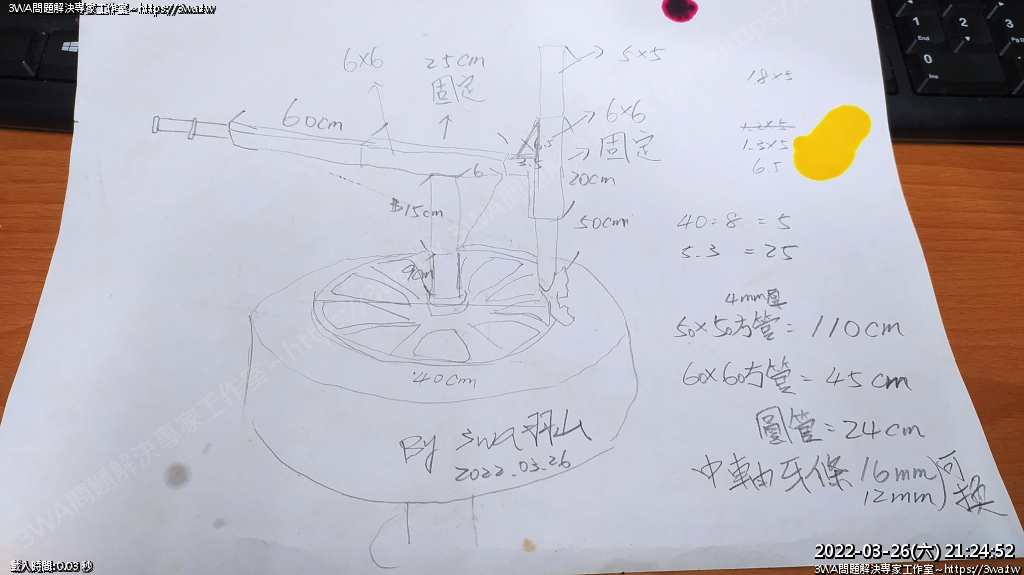 3WA問題解決專家工作室~https://3wa.tw
6x6
25cm
固定
5x5
18x5
60cm
6x6
固定
1.2x5
1.3x5
6.5
6.5
3.5
6
20cm
15cm
50cm
40÷8=5
5.3=25
9cm
4mm厚
50x50方管=110cm
60x60方管=45cm
圓管=24cm
40cm
By 3WA羽山
2022.03.26
中軸牙條 16mm
12mm
可換
3WA問題解決專家工作室~https://
載入時間:0.03 秒
2022-03-26(六) 21:24:52
3WA問題解決專家工作室~https://3wa.tw